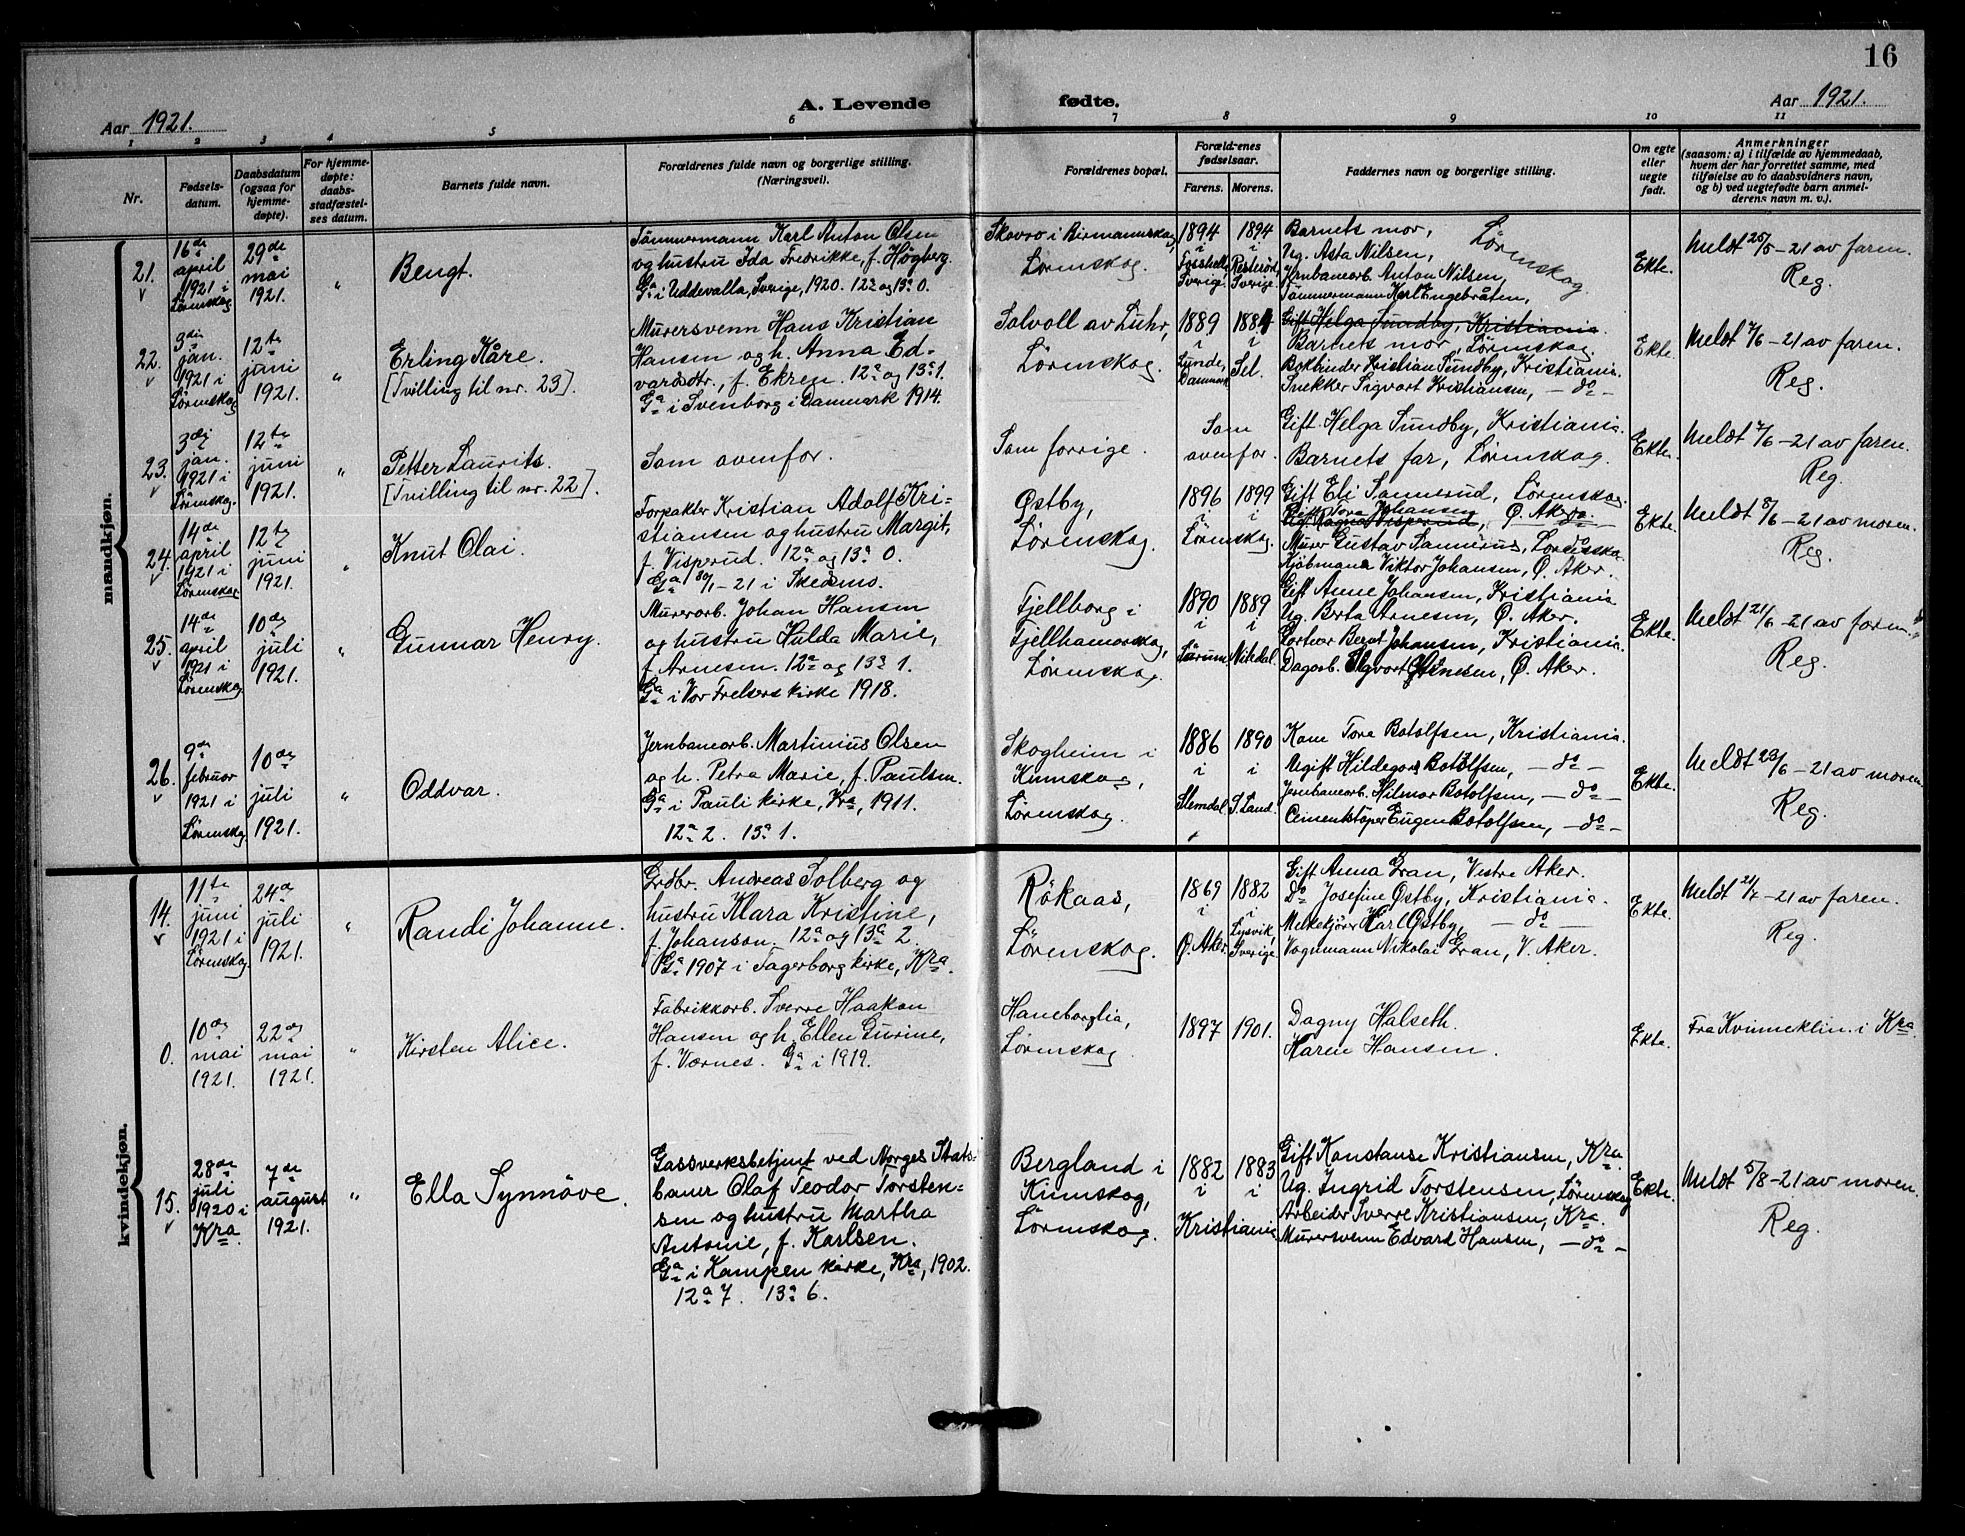 16
A. Levende fødte.
Aar 1921.
Aar 1921.
1 2 3 4 5 6 7 8 9 10 11
Nr.
Fødsels-
datum.
Daabsdatum
(ogsaa for
hjemme-
døpte).
For hjemme-
døpte:
daabs-
stadfæstel-
ses datum.
Barnets fulde navn.
Forældrenes fulde navn og borgerlige stilling.
(Næringsvei).
Forældrenes bopæl.
Forældrenes
fødselsaar.
Farens. Morens.
Faddernes navn og borgerlige stilling.
Om egte
eller
uegte
født.
Anmerkninger
(saasom: a) i tilfælde av hjemmedaab,
hvem der har forrettet samme, med
tilføielse av to daabsvidners navn,
og b) ved uegtefødte barn anmel-
derens navn m. v.).
mandkjøn.
21.
16de
april
1921 i
Lörenskog
29de
mai
1921.
"
Bengt.
Tömmermann Karl Anton Olsen
og hustru Ida Fredrikke, f. Högberg.
Ga i Uddevalla, Sverige, 1920. 12a og 13a 0.
Skovro i Birmannskog,
Lörenskog.
1894 1894
i i
Sverige. Sverige.
Barnets mor, Lörenskog.
Ug. Asta Nilsen,
Jernbanearb. Anton Nilsen,
Tömmermann Karl Engebråten,
Ekte.
Meldt 25/5 - 21 av faren.
Reg.
22.
3dje
jan.
1921 i
Lörenskog
12te
juni
1921.
"
Erling Kåre.
[Tvilling til nr. 23].
Murersvenn Hans Kristian
Hansen og h. Anna Ed-
vardsdtr., f. Ekren. 12a og 13a 1.
Ga i Svenborg i Danmark 1914.
Solvoll av Luhr,
Lörenskog.
1889 1884
i i
Lunde, Sel.
Danmark
Gift Helga Sundby, Kristiania.
Barnets mor, Lörenskog
Bokbinder Kristian Sundby, Kristiania.
Snekker Sigvart Kristiansen, - do -
Ekte.
Meldt 7/6 - 21 av faren.
Reg.
23.
3dje
jan.
1921 i
Lörenskog.
12te
juni
1921.
"
Petter Laurits.
[Tvilling til nr. 22].
Som ovenfor.
Som forrige.
Som
ovenfor.
Gift. Helga Sundby, Kristiania.
Barnets far, Lörenskog.
Ekte.
Meldt 7/6 - 21 av faren.
Reg.
24.
14de
april
1921 i
Lörenskog
12te
juni
1921.
"
Knut Olai.
Forpakter Kristian Adolf Kri-
stiansen og hustru Margit,
f. Visperud. 12a og 13a 0.
Ga 30/1 - 21 i Skedsmo.
Østby,
Lörenskog.
1896 1899
i i
Lörenskog.
Gift Eli Sannerud, Lörenskog.
Gift Tora Johansen
Ug. Ragna Visperud, Ø. Aker.
Murer Gustav Sannerud,
Kjöbmann Viktor Johansen, Ø. Aker.
Ekte.
Meldt 8/6 - 21 av moren.
Reg.
25.
14de
april
1921 i
Lörenskog
10de
juli
1921.
"
Gunnar Henry.
Murerarb. Johan Hansen
og hustru Hulda Marie,
f. Arnesen. 12a og 13a 1.
Ga i Vor Frelsers kirke 1918.
Fjellborg i
Fjellhamarskog,
Lörenskog.
1890 1889
i i
Sörum. Nitedal.
Gift Anne Johansen, Kristiania
Ug. Berta Arnesen, Ø. Aker.
Bernt Johansen, Kristiania.
Dagarb. Sigvart Arnesen, Ø. Aker.
Ekte.
Meldt 21/6 - 21 av faren.
Reg.
26.
9de
februar
1921 i
Lörenskog
10de
juli
1921.
"
Oddvar.
Jernbanearb. Martinius Olsen
og h. Petra Marie, f. Paulsen.
Ga i Pauli kirke, Kra, 1911.
12a 2. 13a 1.
Skogheim i
Kinnskog,
Lörenskog.
1886 1890
i i
Slemdal. S. Land.
Kone Tora Botolfsen, Kristiania.
Ugift Hildegard Botolfsen, - do -
Jernbanearb. Hilmar Botolfsen, - do -
Cementstöper Eugen Botolfsen, - do -
Ekte.
Meldt 23/6 - 21 av moren.
Reg.
kvindekjøn.
14.
11te
juni
1921 i
Lörenskog.
24de
juli
1921.
"
Randi Johanne.
Grdbr. Andreas Solberg og
hustru Klara Kristine,
f. Johanson. 12a og 13a 2.
Ga 1907 i Fagerborg kirke, Kra.
Rökaas,
Lörenskog.
1869 1882
i i
Ø. Aker. Lysvik,
Sverige.
Gift Anna Gran, Vestre Aker.
Do Josefine Østby, Kristiania.
Melkekjörer Karl Østby, - do -
Vognmann Nikolai Gran, V. Aker.
Ekte.
Meldt 21/7 - 21 av faren.
Reg.
0.
10de
mai
1921.
22de
mai
1921.
"
Kirsten Alice.
Fabrikkarb. Sverre Haakon
Hansen og h. Ellen Gurine,
f. Værnes. Ga i 1919.
Haneborglia,
Lörenskog.
1897 1901.
Dagny Halseth.
Karen Hansen.
Ekte.
Fra Kvinneklin. i Kra.
15.
28de
juli
1920 i
Kra.
7de
august
1921.
"
Ella Synnöve.
Gassverksbetjent ved Norges Stats-
baner Olaf Teodor Torsten-
sen og hustru Martha
Antonie, f. Karlsen.
Ga i Kampen kirke, Kra, 1902.
12a 7. 13a 6.
Bergland i
Kinnskog,
Lörenskog.
1882 1883
i i
Kristiania
Gift Konstanse Kristiansen, Kra.
Ug. Ingrid Torstensen, Lörenskog
Arbeider Sverre Kristiansen, Kra.
Murersvenn Edvard Hansen, - do -
Ekte.
Meldt 5/8 - 21 av moren.
Reg.